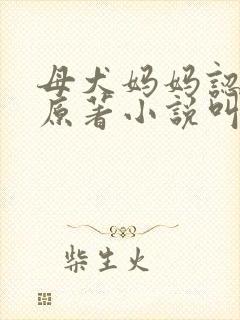 母犬妈妈認
原著小說叫
柴生火